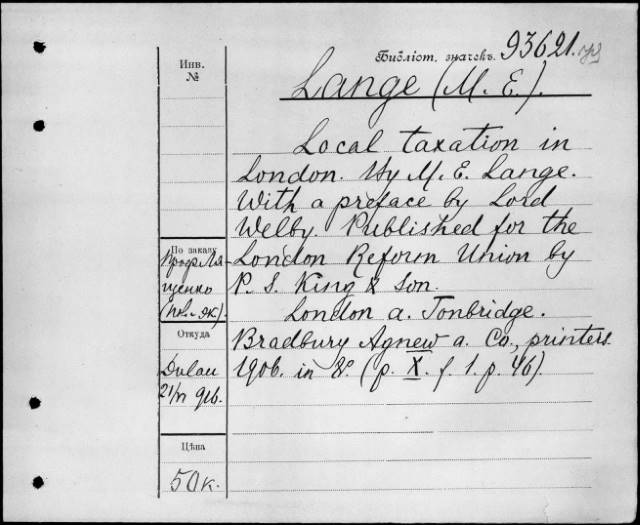 Библіот. значекъ. 93621.
Инв.
№
Lange (M. E.).
Local taxation in
London. By M. E. Lange.
With a preface by Lord
Welby. Published for the
London Reform Union by
P. S. King & Son.
London a. Tonbridge.
Bradbury Agnew a. Co., printers
1906. in 8º. (p. X. f. 1. p. 46).
По заказу
Проф. Ля-
щенко
Откуда
Dulau
Цѣна
50 к.